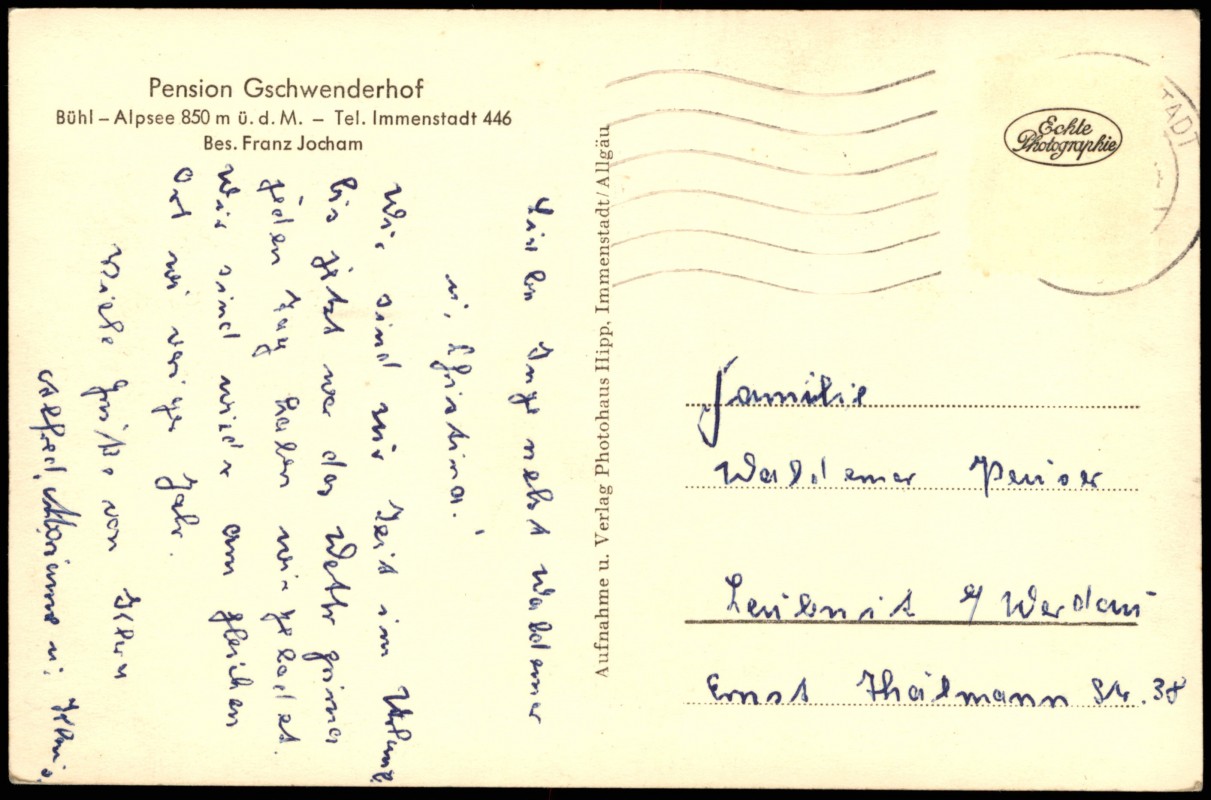 Pension Gschwenderhof
Bühl – Alpsee 850 m ü. d. M. – Tel. Immenstadt 446
Bes. Franz Jocham
Lieben Inge nebst Waldemar
u. Christina!
Wir sind zur Zeit im Urlaub
bis jetzt war das Wetter prima
jeden Tag haben wir gebadet.
Wir sind wieder am gleichen
Ort wie voriges Jahr.
Viele Grüße von
Alfred, Marianne u.
Aufnahme u. Verlag Photohaus Hipp, Immenstadt/Allgäu
TADT
Echte
Photographie
Familie
Waldemar
Leubnit / Werdau
Ernst Thälmann Str. 38